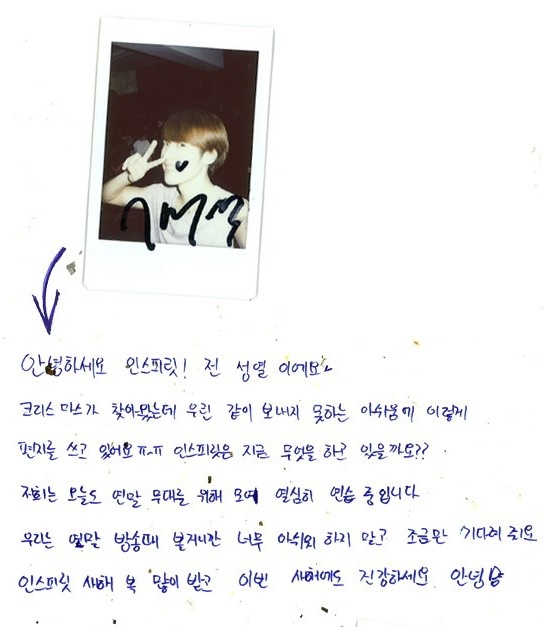 안녕하세요 인스피릿! 전 성열 이에요~
크리스마스가 찾아왔는데 우린 같이 보내지 못하는 아쉬움에 이렇게
편지를 쓰고 있어요 ㅠ_ㅠ 인스피릿은 지금 무엇을 하고 있을까요??
저희는 오늘도 연말 무대를 위해 모여 열심히 연습 중입니다
우리는 연말 방송때 볼거니깐 너무 아쉬워 하지 말고 조금만 기다려 줘요
인스피릿 새해 복 많이 받고 이번 새해에도 건강하세요 안녕